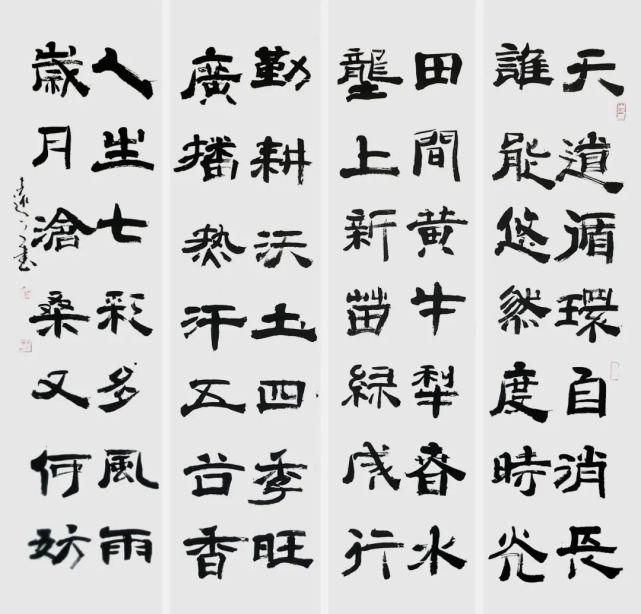 天道循環自消長
誰能悠然度時光
田間黄牛犁春水
壟上新苗綠成行
勤耕沃土四季旺
廣播热汗五谷香
人生七彩多風雨
歲月滄桑又何妨